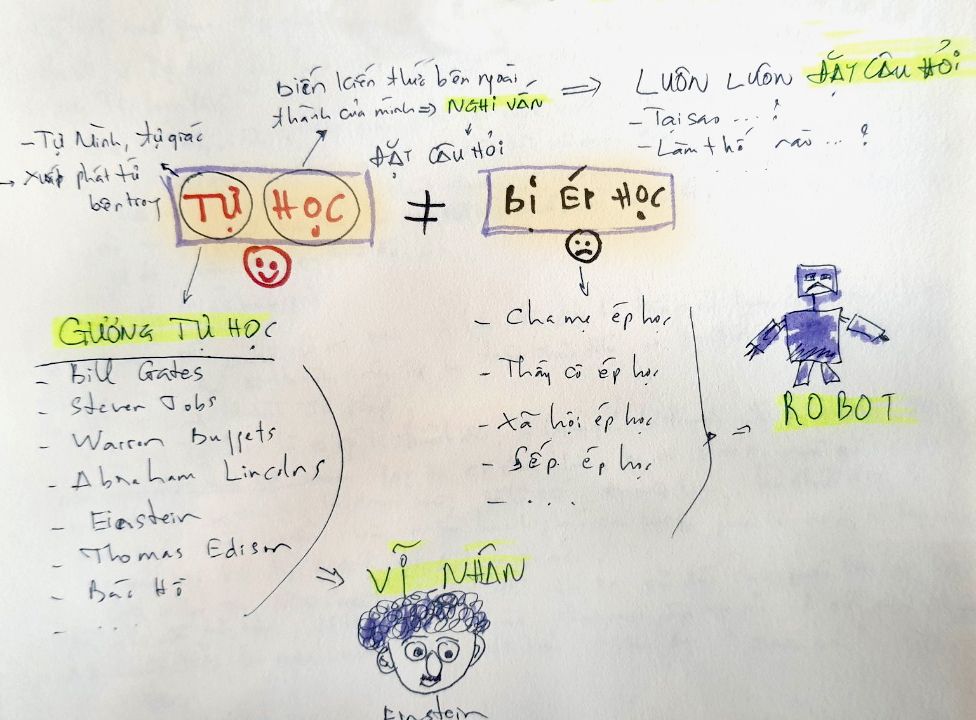 Biến kiến thức bên ngoài
thành của mình => NGHI VẤN
ĐẶT CÂU HỎI
=> LUÔN LUÔN ĐẶT CÂU HỎI
- Tại sao ...?
- Làm thế nào ...?
.....
- Tự Mình, tự giác
→ xuất phát từ
bên trong
TỰ HỌC
≠
BỊ ÉP HỌC
GƯƠNG TỰ HỌC
- Bill Gates
- Steven Jobs
- Warren Buffets
- Abraham Lincolns
- Einstein
- Thomas Edison
- Bác Hồ
- ....
=> VĨ NHÂN
Einstein
- Cha mẹ ép học
- Thầy cô ép học
- Xã hội ép học
- Sếp ép học
- ....
= ROBOT